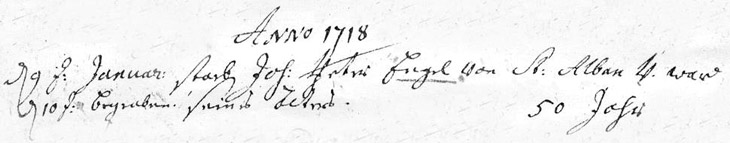 Anno 1718
d 9 t: Januar: starb Joh: Peter Engel von St: Alban V. ward
d 10 t: begraben. seines Alters. 50 Jahr